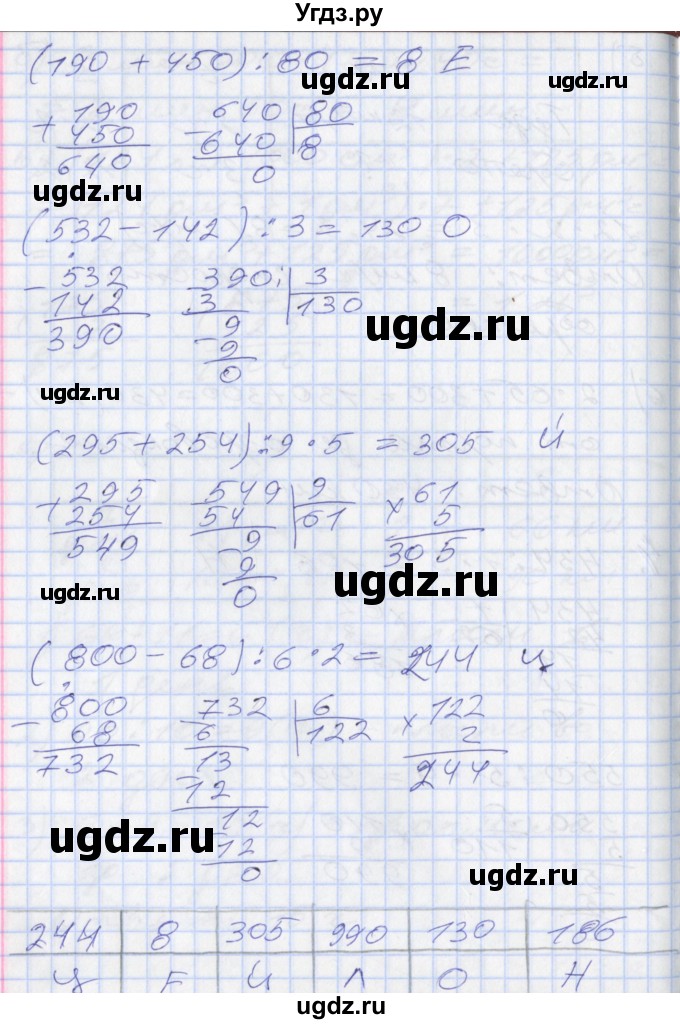 Угдз.ру
(190 + 450) : 80 = 8 Е
ugdz.ru ugdz.ru
+ 190 - 640 | 80
450 640 8
640 0
ugdz.ru ugdz.ru
(532 - 142) : 3 = 130 О
- 532 - 390 | 3
142 3 130
390 - 9
9
0
ugdz.ru
ugdz.ru ugdz.ru
(295 + 254) : 9 · 5 = 305 Й
+ 295 - 549 | 9 × 61
254 54 61 5
549 - 9 305
9
0
ugdz.ru ugdz.ru
(800 - 68) : 6 · 2 = 244 Ц
- 800 - 732 | 6 × 122
68 6 122 2
732 - 13 244
12
- 12
12
0
ugdz.ru ugdz.ru
244 8 305 990 130 186
Ц Е Й Л О Н
ugdz.ru